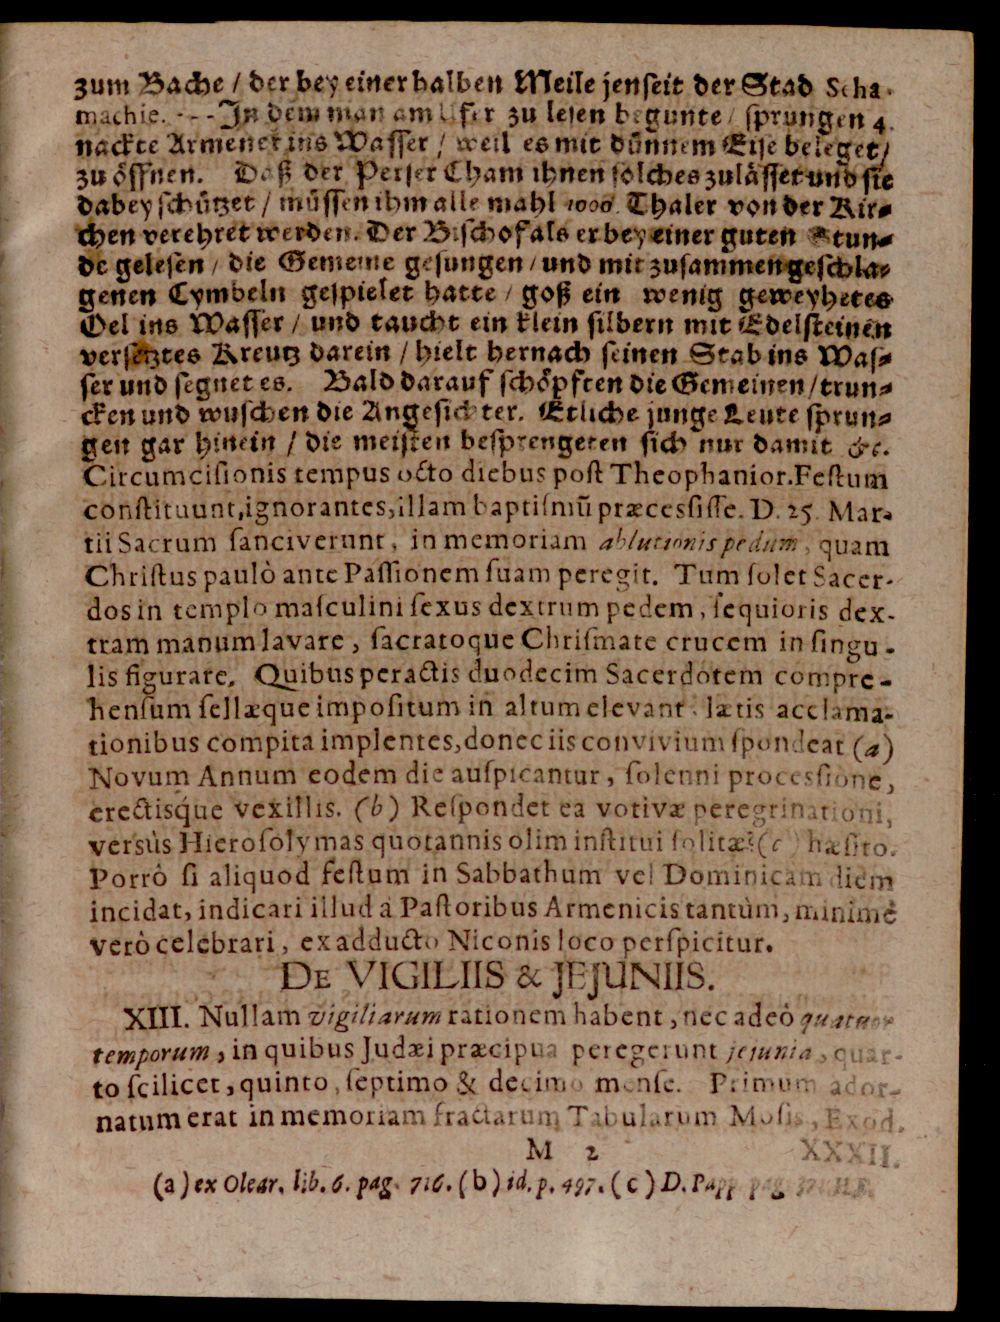 zum Bache / der bey einer halben Meile jenseit der Stad Scha-
machie. - - - In dem man am Ufer zu lesen begunte / sprungen 4.
nackte Armener ins Wasser / weil es mit dünnem Eise beleget /
zu öffnen. Daß der Perser Cham ihnen solches zulässet und sie
dabey schützet / müssen ihm alle mahl 1000. Thaler von der Kir-
chen verehret werden. Der Bischof als er bey einer guten Stun-
de gelesen / die Gemeine gesungen / und mit zusammen geschla-
genen Cymbeln gespielet hatte / goß ein wenig geweyhetes
Oel ins Wasser / und taucht ein klein silbern mit Edelsteinen
versetztes Kreutz darein / hielt hernach seinen Stab ins Was-
ser und segnet es. Bald darauf schöpften die Gemeinen / trun-
cken und wuschen die Angesichter. Etliche junge Leute sprun-
gen gar hinein / die meisten besprengeten sich nur damit &c.
Circumcisionis tempus octo diebus post Theophanior. Festum
constituunt, ignorantes, illam baptismũ præcessisse. D. 25. Mar-
tii Sacrum sanciverunt, in memoriam ablutionis pedum, quam
Christus paulò ante Passionem suam peregit. Tum solet Sacer-
dos in templo masculini sexus dextrum pedem, sequioris dex-
tram manum lavare, sacratoque Chrismate crucem in singu-
lis figurare. Quibus peractis duodecim Sacerdotem compre-
hensum sellæque impositum in altum elevant, lætis acclama-
tionibus compita implentes, donec iis convivium spondeat (a)
Novum Annum eodem die auspicantur, solenni processione,
erectisque vexillis. (b) Respondet ea votivæ peregrinationi,
versùs Hierosolymas quotannis olim institui solitæ? (c) hæsito.
Porrò si aliquod festum in Sabbathum vel Dominicam diem
incidat, indicari illud à Pastoribus Armenicis tantùm, minimè
verò celebrari, ex adducto Niconis loco perspicitur.
DE VIGILIIS & JEJUNIIS.
XIII. Nullam vigiliarum rationem habent, nec adeò quatuor
temporum, in quibus Judæi præcipua peregerunt jejunia, quar-
to scilicet, quinto, septimo & decimo mense. Primum ador-
natum erat in memoriam fractarum Tabularum Mosis, Exod.
M 2 XXXII.
(a) ex Olear. lib. 6. pag. 716. (b) id. p. 497. (c) D. Papp